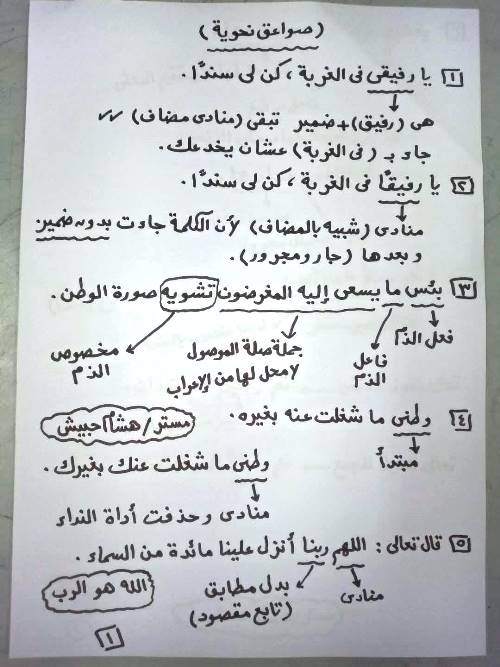 (صواعق نحوية)
١ يا رفيقى فى الغربة، كن لى سندًا.
هى (رفيق) + ضمير تبقى (منادى مضاف) ✓✓
جاو بـ (فى الغربة) عشان يخدعك.
٢ يا رفيقًا فى الغربة، كن لى سندًا.
منادى (شبيه بالمضاف) لأن الكلمة جاءت بدون ضمير
وبعدها (جار ومجرور).
٣ بئس ما يسعى إليه المغرضون تشويه صورة الوطن.
فعل الذم
فاعل الذم
جملة صلة الموصول
لا محل لها من الإعراب
مخصوص الذم
٤ وطنى ما شغلت عنه بغيره.
مبتدأ
مستر/ هشام حبيش
وطنى ما شغلت عنك بغيرك.
منادى وحذفت أداة النداء
٥ قال تعالى: اللهم ربنا أنزل علينا مائدة من السماء.
منادى
بدل مطابق
(تابع مقصود)
الله هو الرب
١